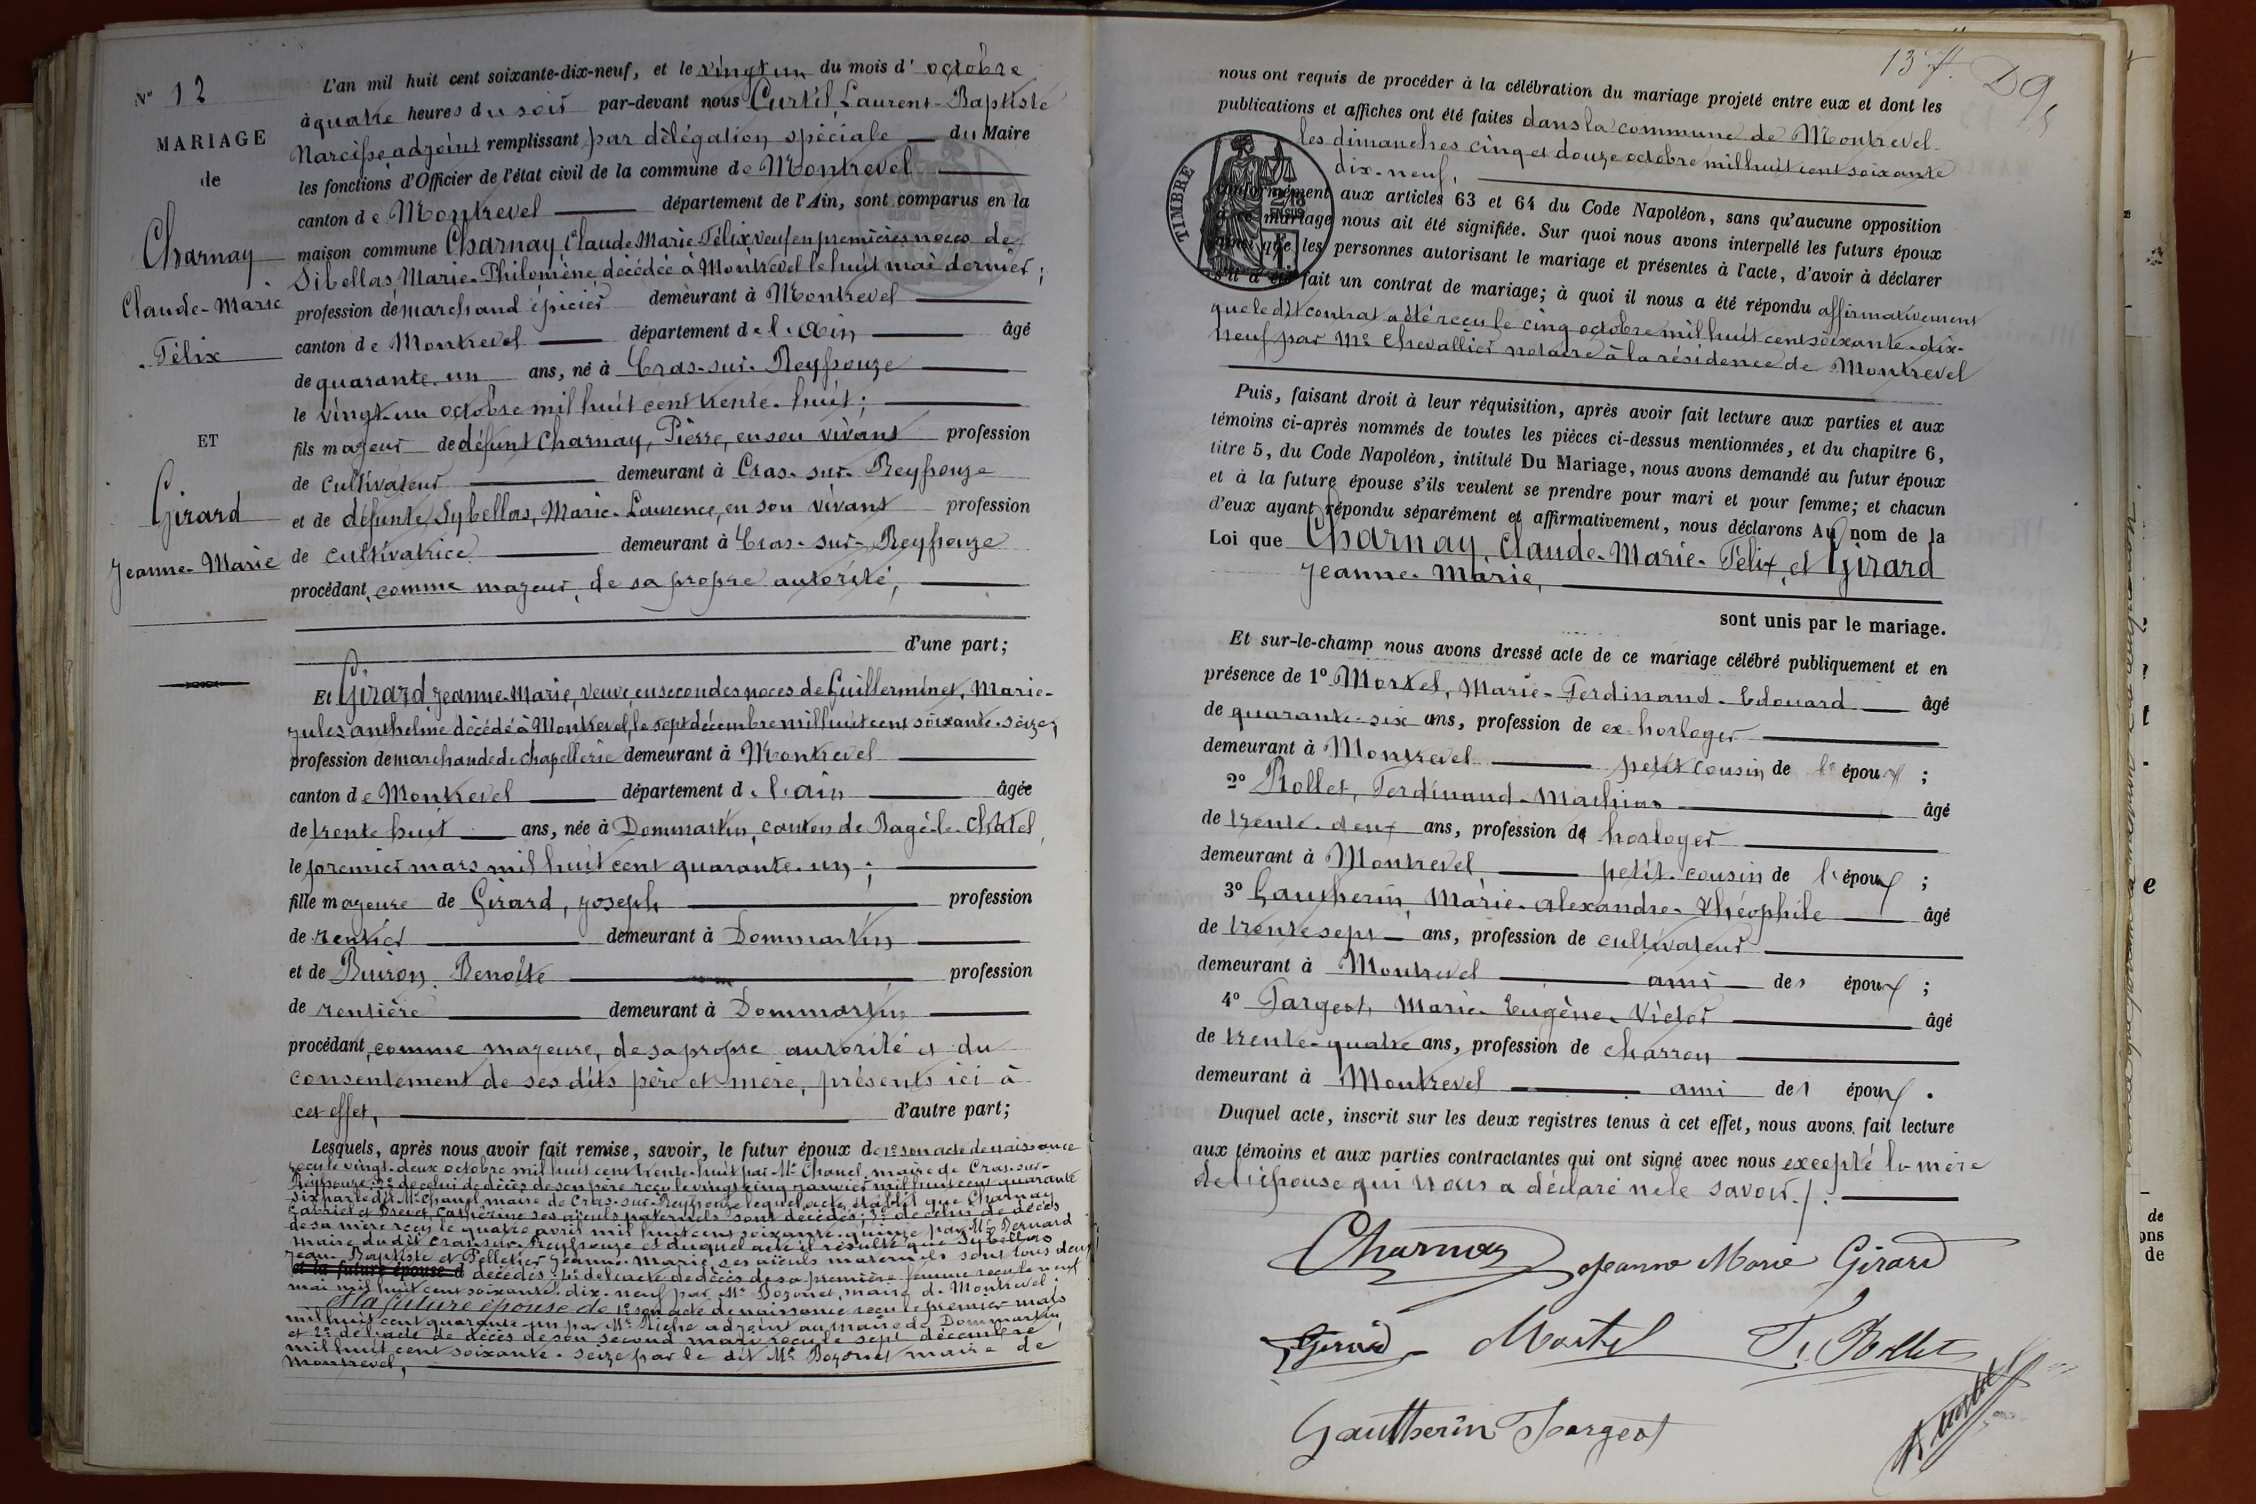 N° 12
MARIAGE
de
Charnay
Claude-Marie
Félix
ET
Girard
Jeanne-Marie
L'an mil huit cent soixante-dix-neuf, et le vingt un du mois d' octobre
à quatre heures du soir par-devant nous Curtil Laurent-Baptiste
Narcisse adjoint remplissant par délégation spéciale du Maire
les fonctions d'Officier de l'état civil de la commune de Montrevel
canton de Montrevel département de l'Ain, sont comparus en la
maison commune Charnay Claude Marie Félix veuf en premières noces de
Sibellas Marie-Philomène décédée à Montrevel le huit mai dernier ;
profession de marchand épicier demeurant à Montrevel
canton de Montrevel département de l'ain âgé
de quarante-un ans, né à Cras-sur-Reyssouze
le vingt-un octobre mil huit cent trente-huit ;
fils majeur de défunt Charnay, Pierre, en son vivant profession
de cultivateur demeurant à Cras-sur-Reyssouze
et de défunte Sybellas, Marie-Laurence, en son vivant profession
de cultivatrice demeurant à Cras-sur-Reyssouze
procédant, comme majeur, de sa propre autorité,
d'une part ;
Et Girard Jeanne-Marie, veuve en secondes noces de Guillerminet, Marie-
jules anthelme décédé à Montrevel, le sept décembre mil huit cent soixante-seize,
profession de marchande de chapellerie demeurant à Montrevel
canton de Montrevel département de l'ain âgée
de trente huit ans, née à Dommartin, canton de Bagé-le-Châtel,
le premier mars mil huit cent quarante-un ;
fille majeure de Girard, joseph profession
de rentier demeurant à Dommartin
et de Buiron Benoîte profession
de rentière demeurant à Dommartin
procédant, comme majeure, de sa propre autorité et du
consentement de ses dits père et mère, présents ici à
cet effet, d'autre part ;
Lesquels, après nous avoir fait remise, savoir, le futur époux de 1° son acte de naissance
reçu le vingt-deux octobre mil huit cent trente-huit par Mr Chanel, maire de Cras-sur-
Reyssouze ; 2° de celui de décès de son père reçu le vingt cinq janvier mil huit cent quarante
six par le dit Mr Chanel maire de Cras-sur-Reyssouze lequel acte établit que Charnay
Gabriel et Brevet Cathérine ses aïeuls paternels sont décédés ; 3° de celui de décès
de sa mère reçu le quatre avril mil huit cent soixante-quinze par Mr Bernard
maire du dit Cras-sur-Reyssouze et duquel acte il résulte que Sybellas
Jean-Baptiste et Pelletier Jeanne-Marie, ses aïeuls maternels sont tous deux
et la future épouse d décédés ; 4° de l'acte de décès de sa première femme reçu le neuf
mai mil huit cent soixante-dix-neuf par Mr Bozonet, maire de Montrevel.
et la future épouse de 1° son acte de naissance reçu le premier mars
mil huit cent quarante-un par Mr Riche adjoint au maire de Dommartin
et 2° de l'acte de décès de son second mari reçu le sept décembre
mil huit cent soixante-seize par le dit Mr Bozonet maire de
Montrevel,
137. D9
nous ont requis de procéder à la célébration du mariage projeté entre eux et dont les
publications et affiches ont été faites dans la commune de Montrevel
les dimanches cinq et douze octobre mil huit cent soixante
dix-neuf,
TIMBRE
conformément aux articles 63 et 64 du Code Napoléon, sans qu'aucune opposition
à ce mariage nous ait été signifiée. Sur quoi nous avons interpellé les futurs époux
ainsi que les personnes autorisant le mariage et présentes à l'acte, d'avoir à déclarer
s'il a été fait un contrat de mariage ; à quoi il nous a été répondu affirmativement
que le dit contrat a été reçu le cinq octobre mil huit cent soixante-dix-
neuf par Mr Chevallier notaire à la résidence de Montrevel
Puis, faisant droit à leur réquisition, après avoir fait lecture aux parties et aux
témoins ci-après nommés de toutes les pièces ci-dessus mentionnées, et du chapitre 6,
titre 5, du Code Napoléon, intitulé Du Mariage, nous avons demandé au futur époux
et à la future épouse s'ils veulent se prendre pour mari et pour femme ; et chacun
d'eux ayant répondu séparément et affirmativement, nous déclarons Au nom de la
Loi que Charnay, Claude-Marie-Félix, et Girard
Jeanne-Marie,
sont unis par le mariage.
Et sur-le-champ nous avons dressé acte de ce mariage célébré publiquement et en
présence de 1° Martel, Marie-Ferdinand-Edouard âgé
de quarante-six ans, profession de ex-horloger
demeurant à Montrevel petit cousin de l'époux ;
2° Rollet, Ferdinand-Mathias âgé
de trente-deux ans, profession de horloger
demeurant à Montrevel petit-cousin de l'époux ;
3° Gautherin, Marie-alexandre-Théophile âgé
de trente sept ans, profession de cultivateur
demeurant à Montrevel ami des époux ;
4° Fargeot, Marie-Eugène-Victor âgé
de trente-quatre ans, profession de charron
demeurant à Montrevel ami des époux.
Duquel acte, inscrit sur les deux registres tenus à cet effet, nous avons fait lecture
aux témoins et aux parties contractantes qui ont signé avec nous excepté la mère
de l'épouse qui nous a déclaré ne le savoir.
Charnay Jeanne Marie Girard
Girard Martel F. Rollet
Gautherin Fargeot